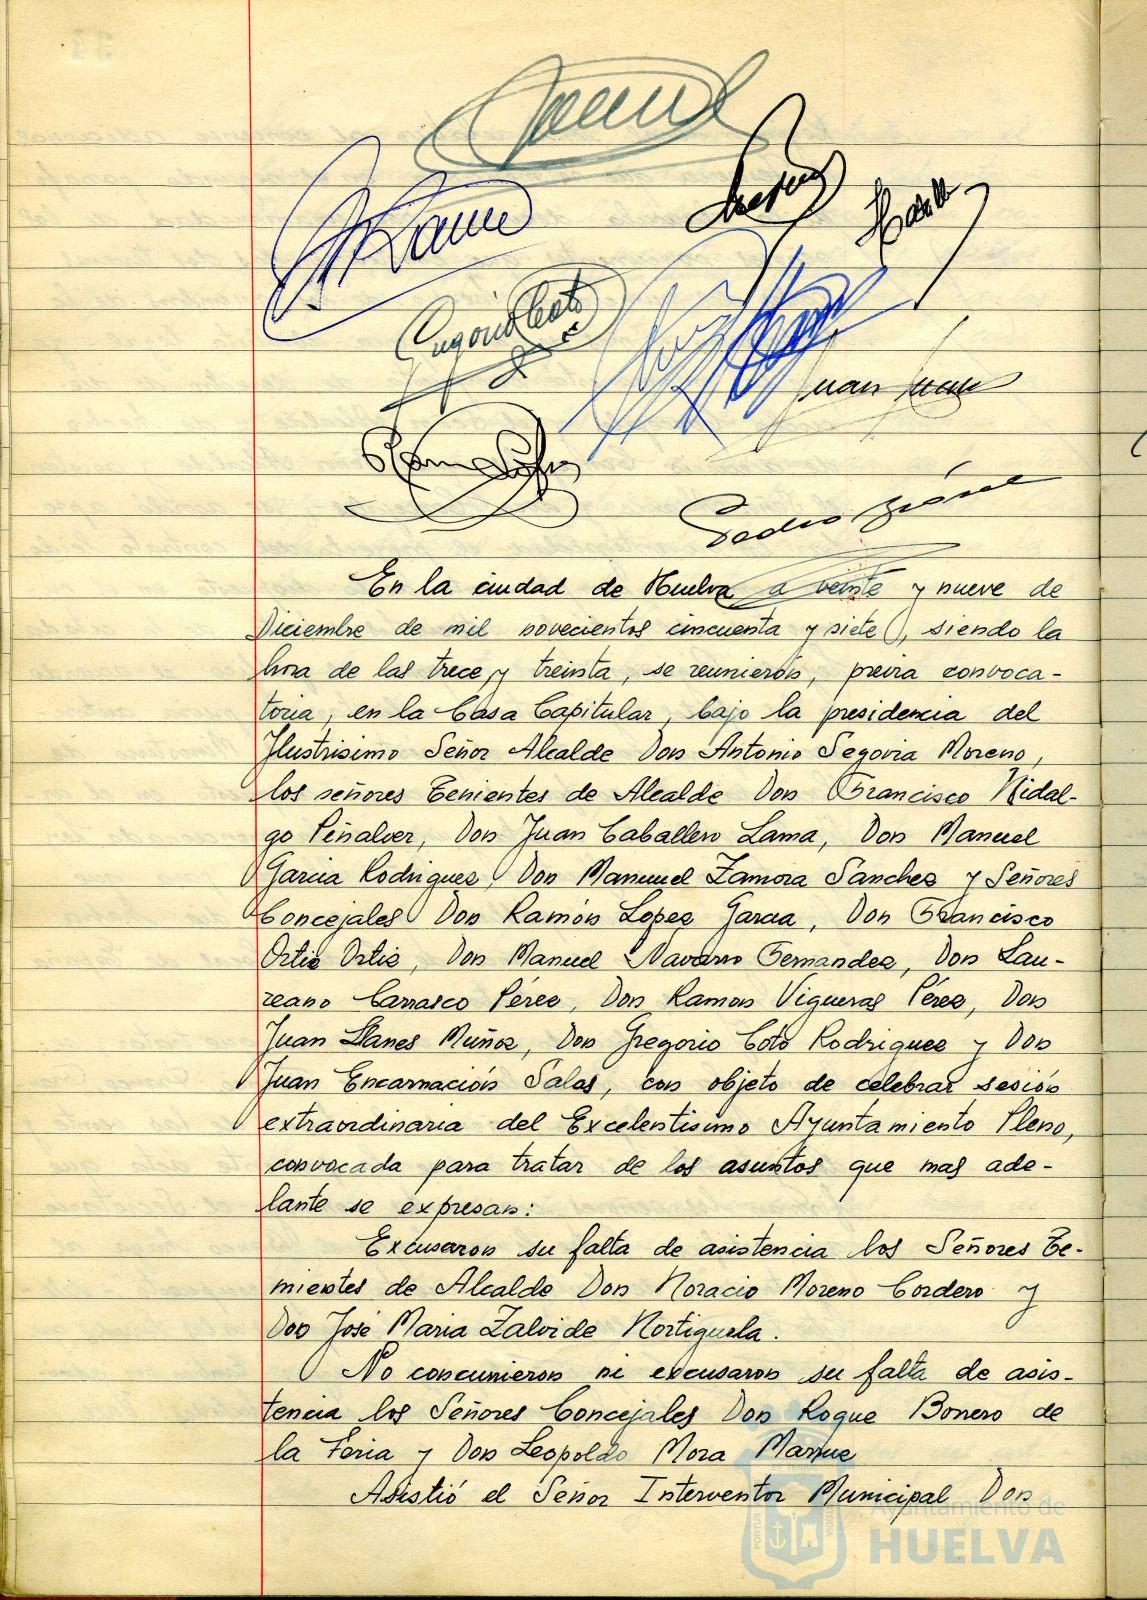 Gregorio Coto
Juan
Pedro
En la ciudad de Huelva a veinte y nueve de
Diciembre de mil novecientos cincuenta y siete, siendo la
hora de las trece y treinta, se reunieron, previa convoca-
toria, en la Casa Capitular, bajo la presidencia del
Ilustrisimo Señor Alcalde Don Antonio Segovia Moreno,
los señores Tenientes de Alcalde Don Francisco Hidal-
go Peñalver, Don Juan Caballero Lama, Don Manuel
Garcia Rodriguez, Don Manuel Zamora Sanchez y Señores
Concejales Don Ramón Lopez Garcia, Don Francisco
Ortiz Ortiz, Don Manuel Navarro Fernandez, Don Lau-
reano Carrasco Pérez, Don Ramon Vigueras Pérez, Don
Juan Llanes Muñoz, Don Gregorio Coto Rodriguez y Don
Juan Encarnación Salas, con objeto de celebrar sesión
extraordinaria del Excelentisimo Ayuntamiento Pleno,
convocada para tratar de los asuntos que mas ade-
lante se expresan:
Excusaron su falta de asistencia los Señores Te-
nientes de Alcalde Don Horacio Moreno Cordero y
Don José Maria Zalvide Hortiguela.
No concurrieron ni excusaron su falta de asis-
tencia los Señores Concejales Don Roque Bonero de
la Feria y Don Leopoldo Mora
Asistió el Señor Interventor Municipal Don
Ayuntamiento de
HUELVA